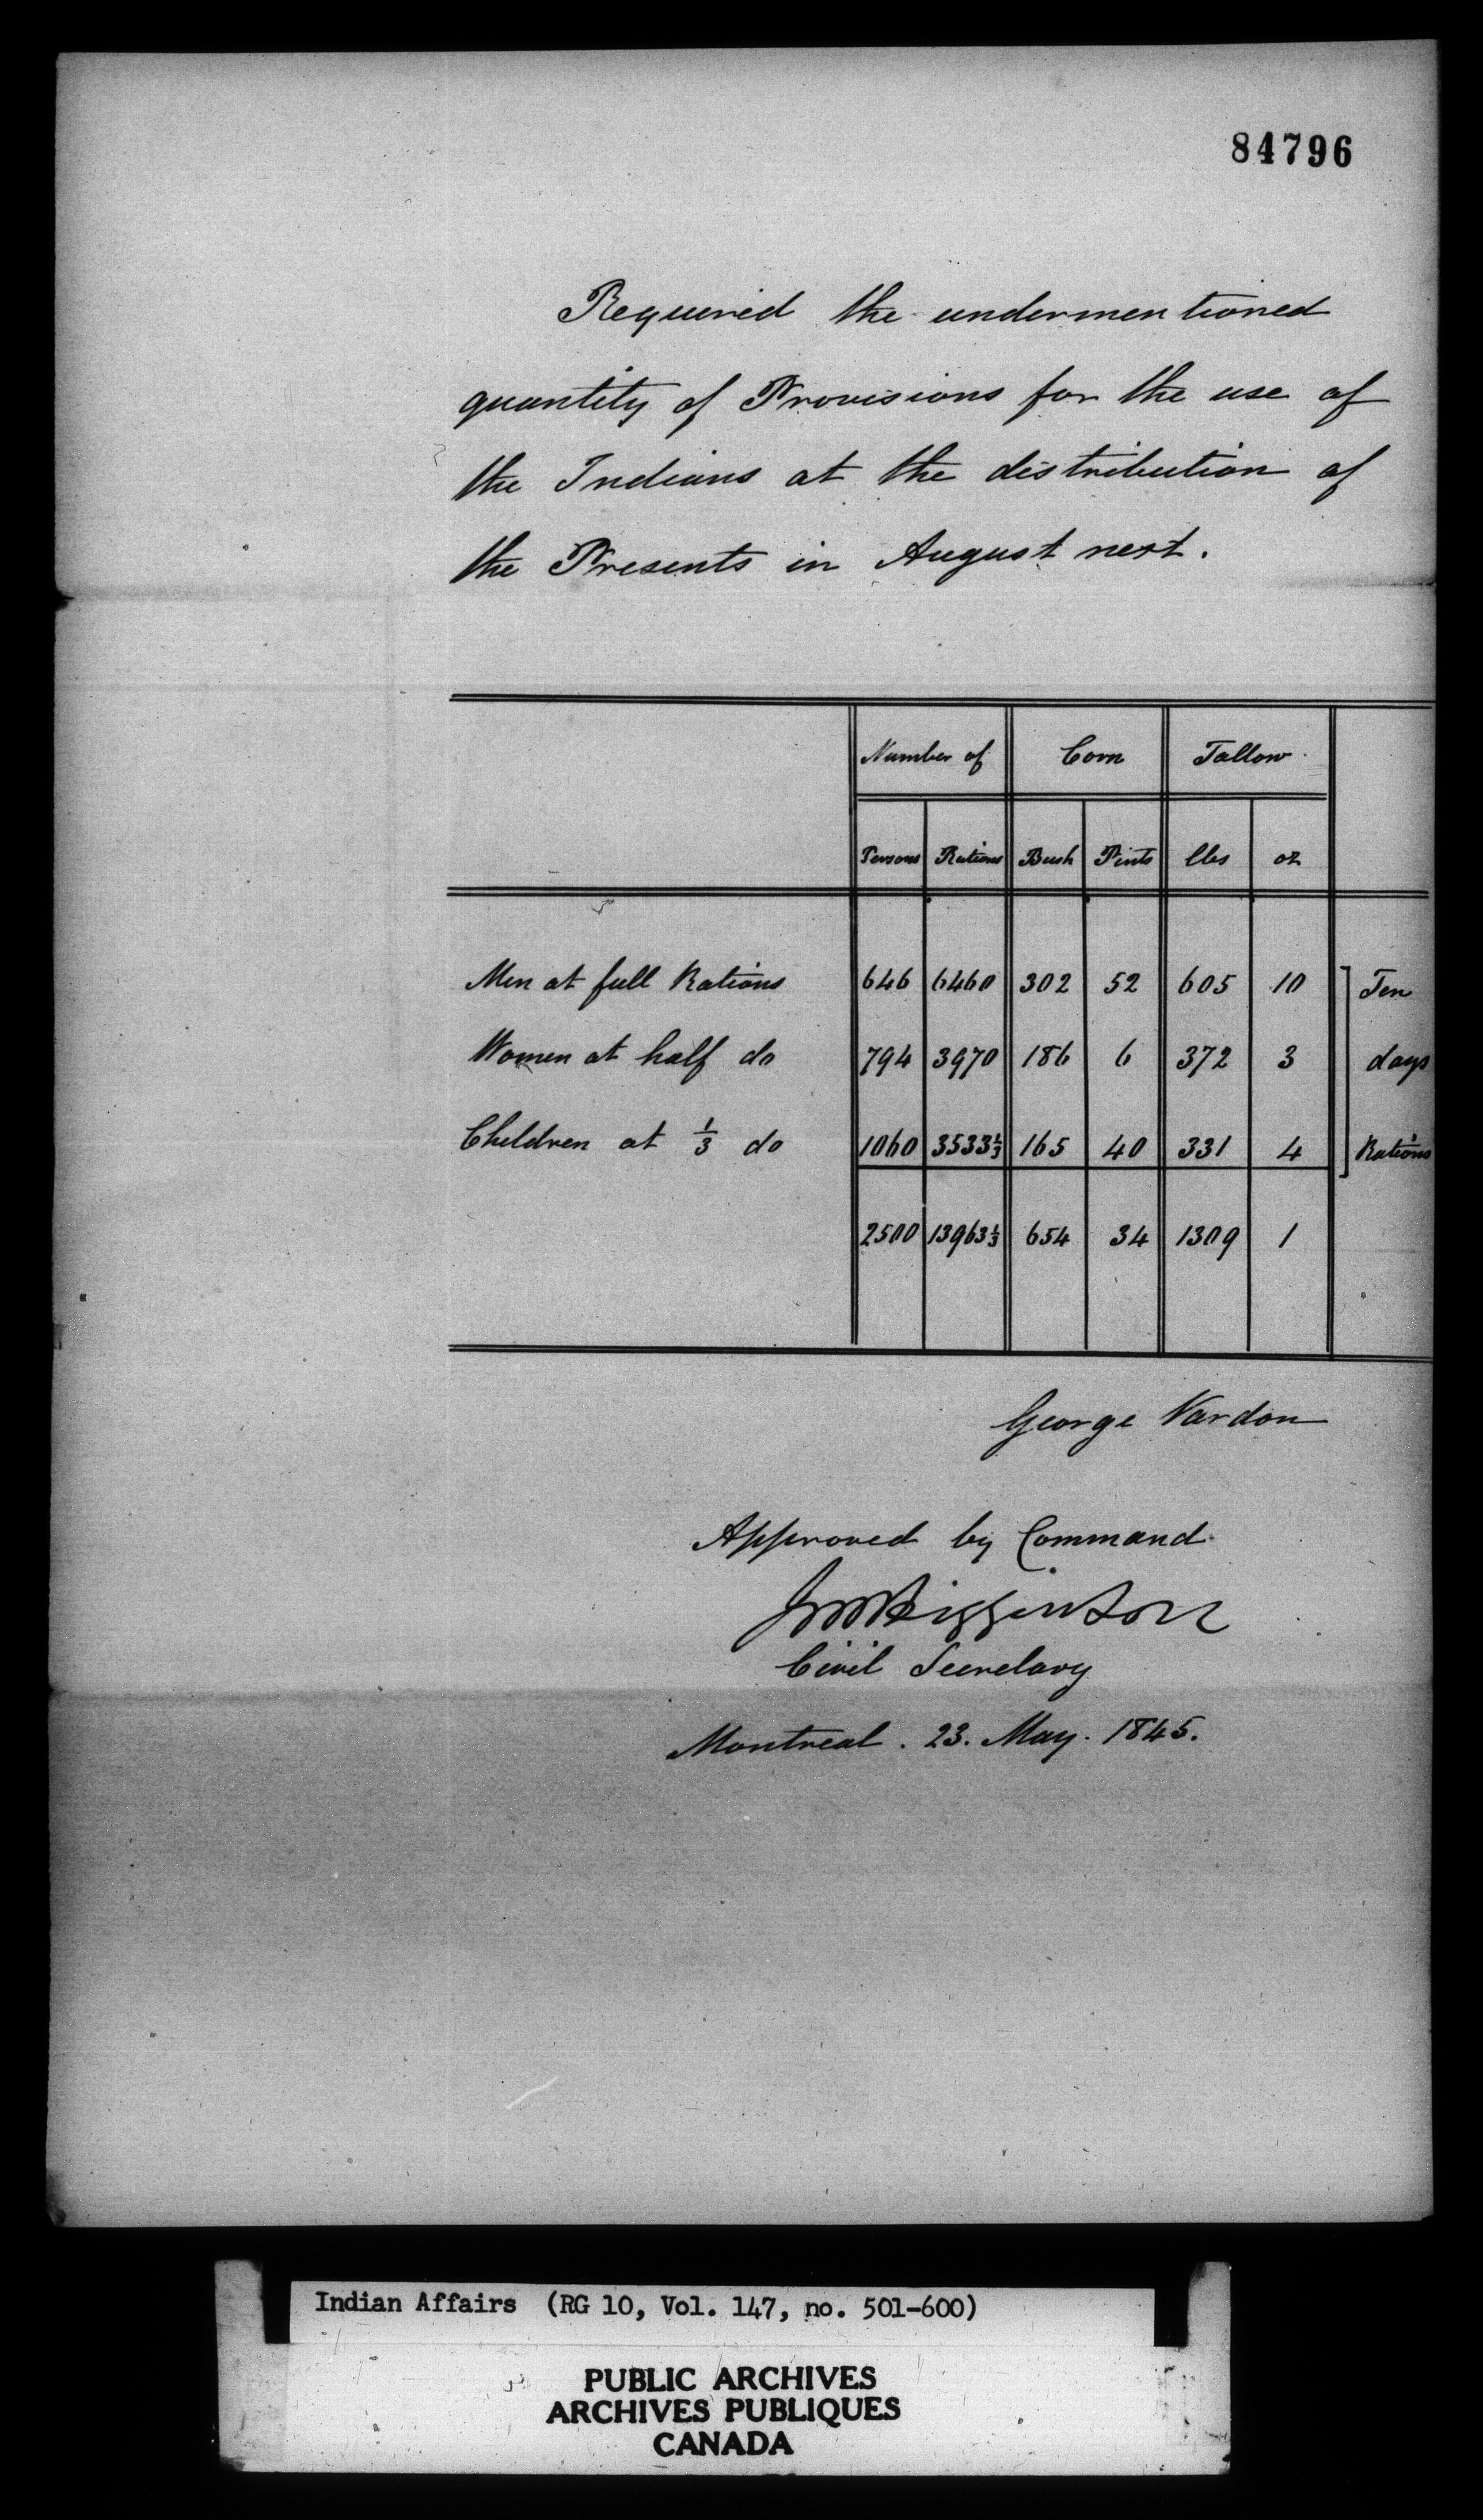 84796
Required the undermentioned
quantity of Provisions for the use of
the Indians at the distribution of
the Presents in August next.
Number of Corn Tallow
Persons Rations Bush Pints lbs oz
Men at full Rations 646 6460 302 52 605 10 Ten
Women at half do 794 3970 186 6 372 3 days
Children at 1/3 do 1060 3533 1/3 165 40 331 4 Rations
2500 13963 1/3 654 34 1309 1
George Vardon
Approved by Command
JM Higginson
Civil Secretary
Montreal. 23. May. 1845.
Indian Affairs (RG 10, Vol. 147, no. 501-600)
PUBLIC ARCHIVES
ARCHIVES PUBLIQUES
CANADA